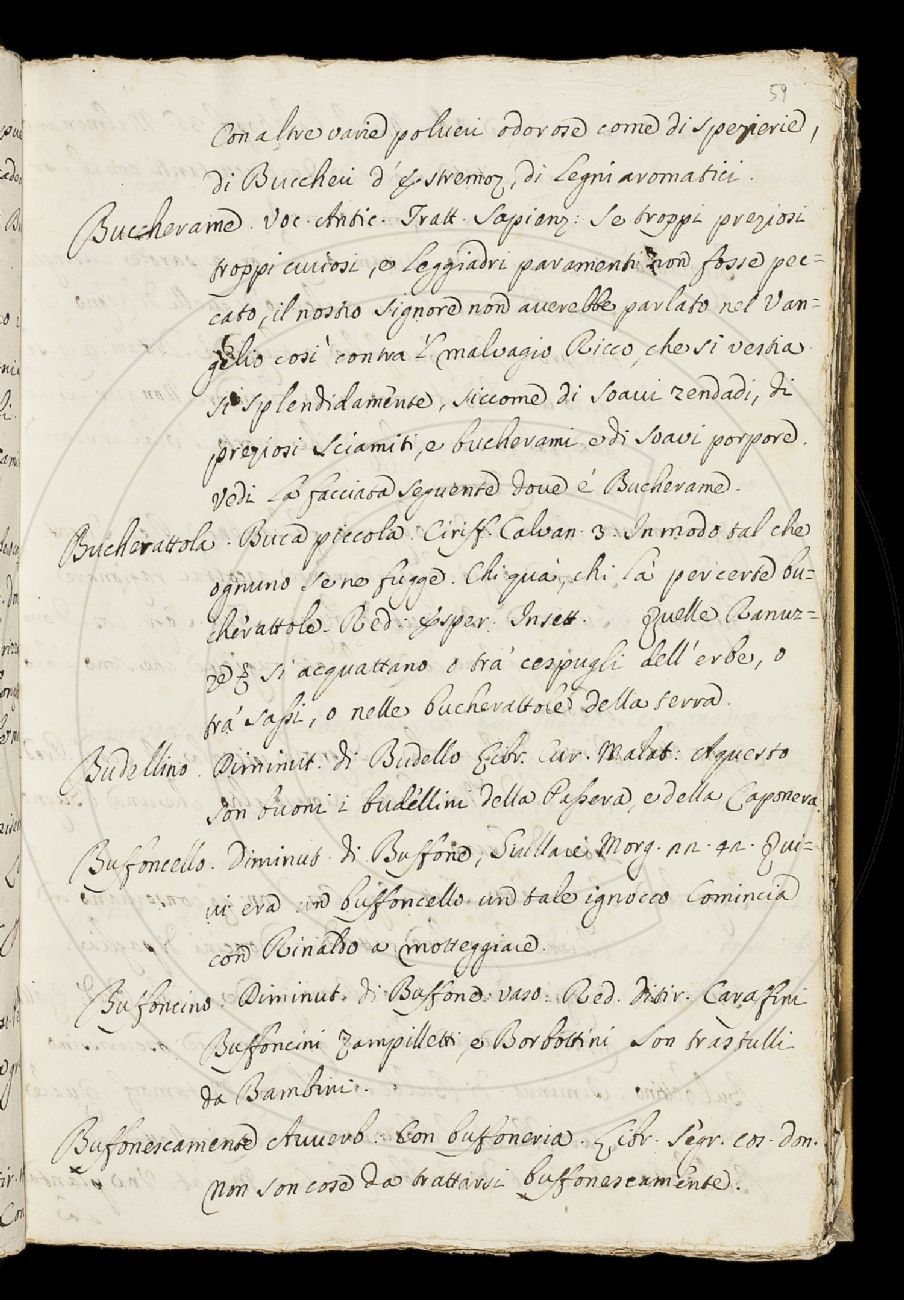 59
Con altre varie polveri odorose come di spezierie,
di Buccheri d'Estremoz, di Legni aromatici.
Buccherame. Voc. Antic. Tratt. Sapienz: Se troppi preziosi
troppi curiosi, e leggiadri paramenti non fosse pec=
cato, il nostro Signore non averebbe parlato nel Van=
gelio così contra 'l malvagio Ricco, che si vestia
si splendidamente, siccome di soavi zendadi, di
preziosi sciamiti, e bucherami e di soavi porpore.
vedi La facciata seguente dove é Bucherame.
Bucherattola. Buca piccola. Ciriff. Calvan. 3. In modo tal che
ognuno se ne fugge. Chi quà, chi là per certe bu=
cherattole. Red: Esper. Insett. Quelle Ranuz=
ze si acquattano o trà cespugli dell'erbe, o
trà sassi, o nelle bucherattole della terra.
Budellino. Diminut. di Budello Libr. Cur. Malat: A questo
son buoni i budellini della Passera, e della Caponera.
Buffoncello. Diminut. di Buffone, Giullare Morg. 22. 42. Qui=
vi era un buffoncello un tale ignocco Comincia
con Rinaldo a motteggiare.
Buffoncino. Diminut. di Buffone: vaso: Red. Ditir. Caraffini
Buffoncini Zampilletti, e Borbottini Son trastulli
da Bambini.
Buffonescamente Avverb: Con buffoneria. Libr. Segr. cos. don.
Non son cose da trattarsi buffonescamente.